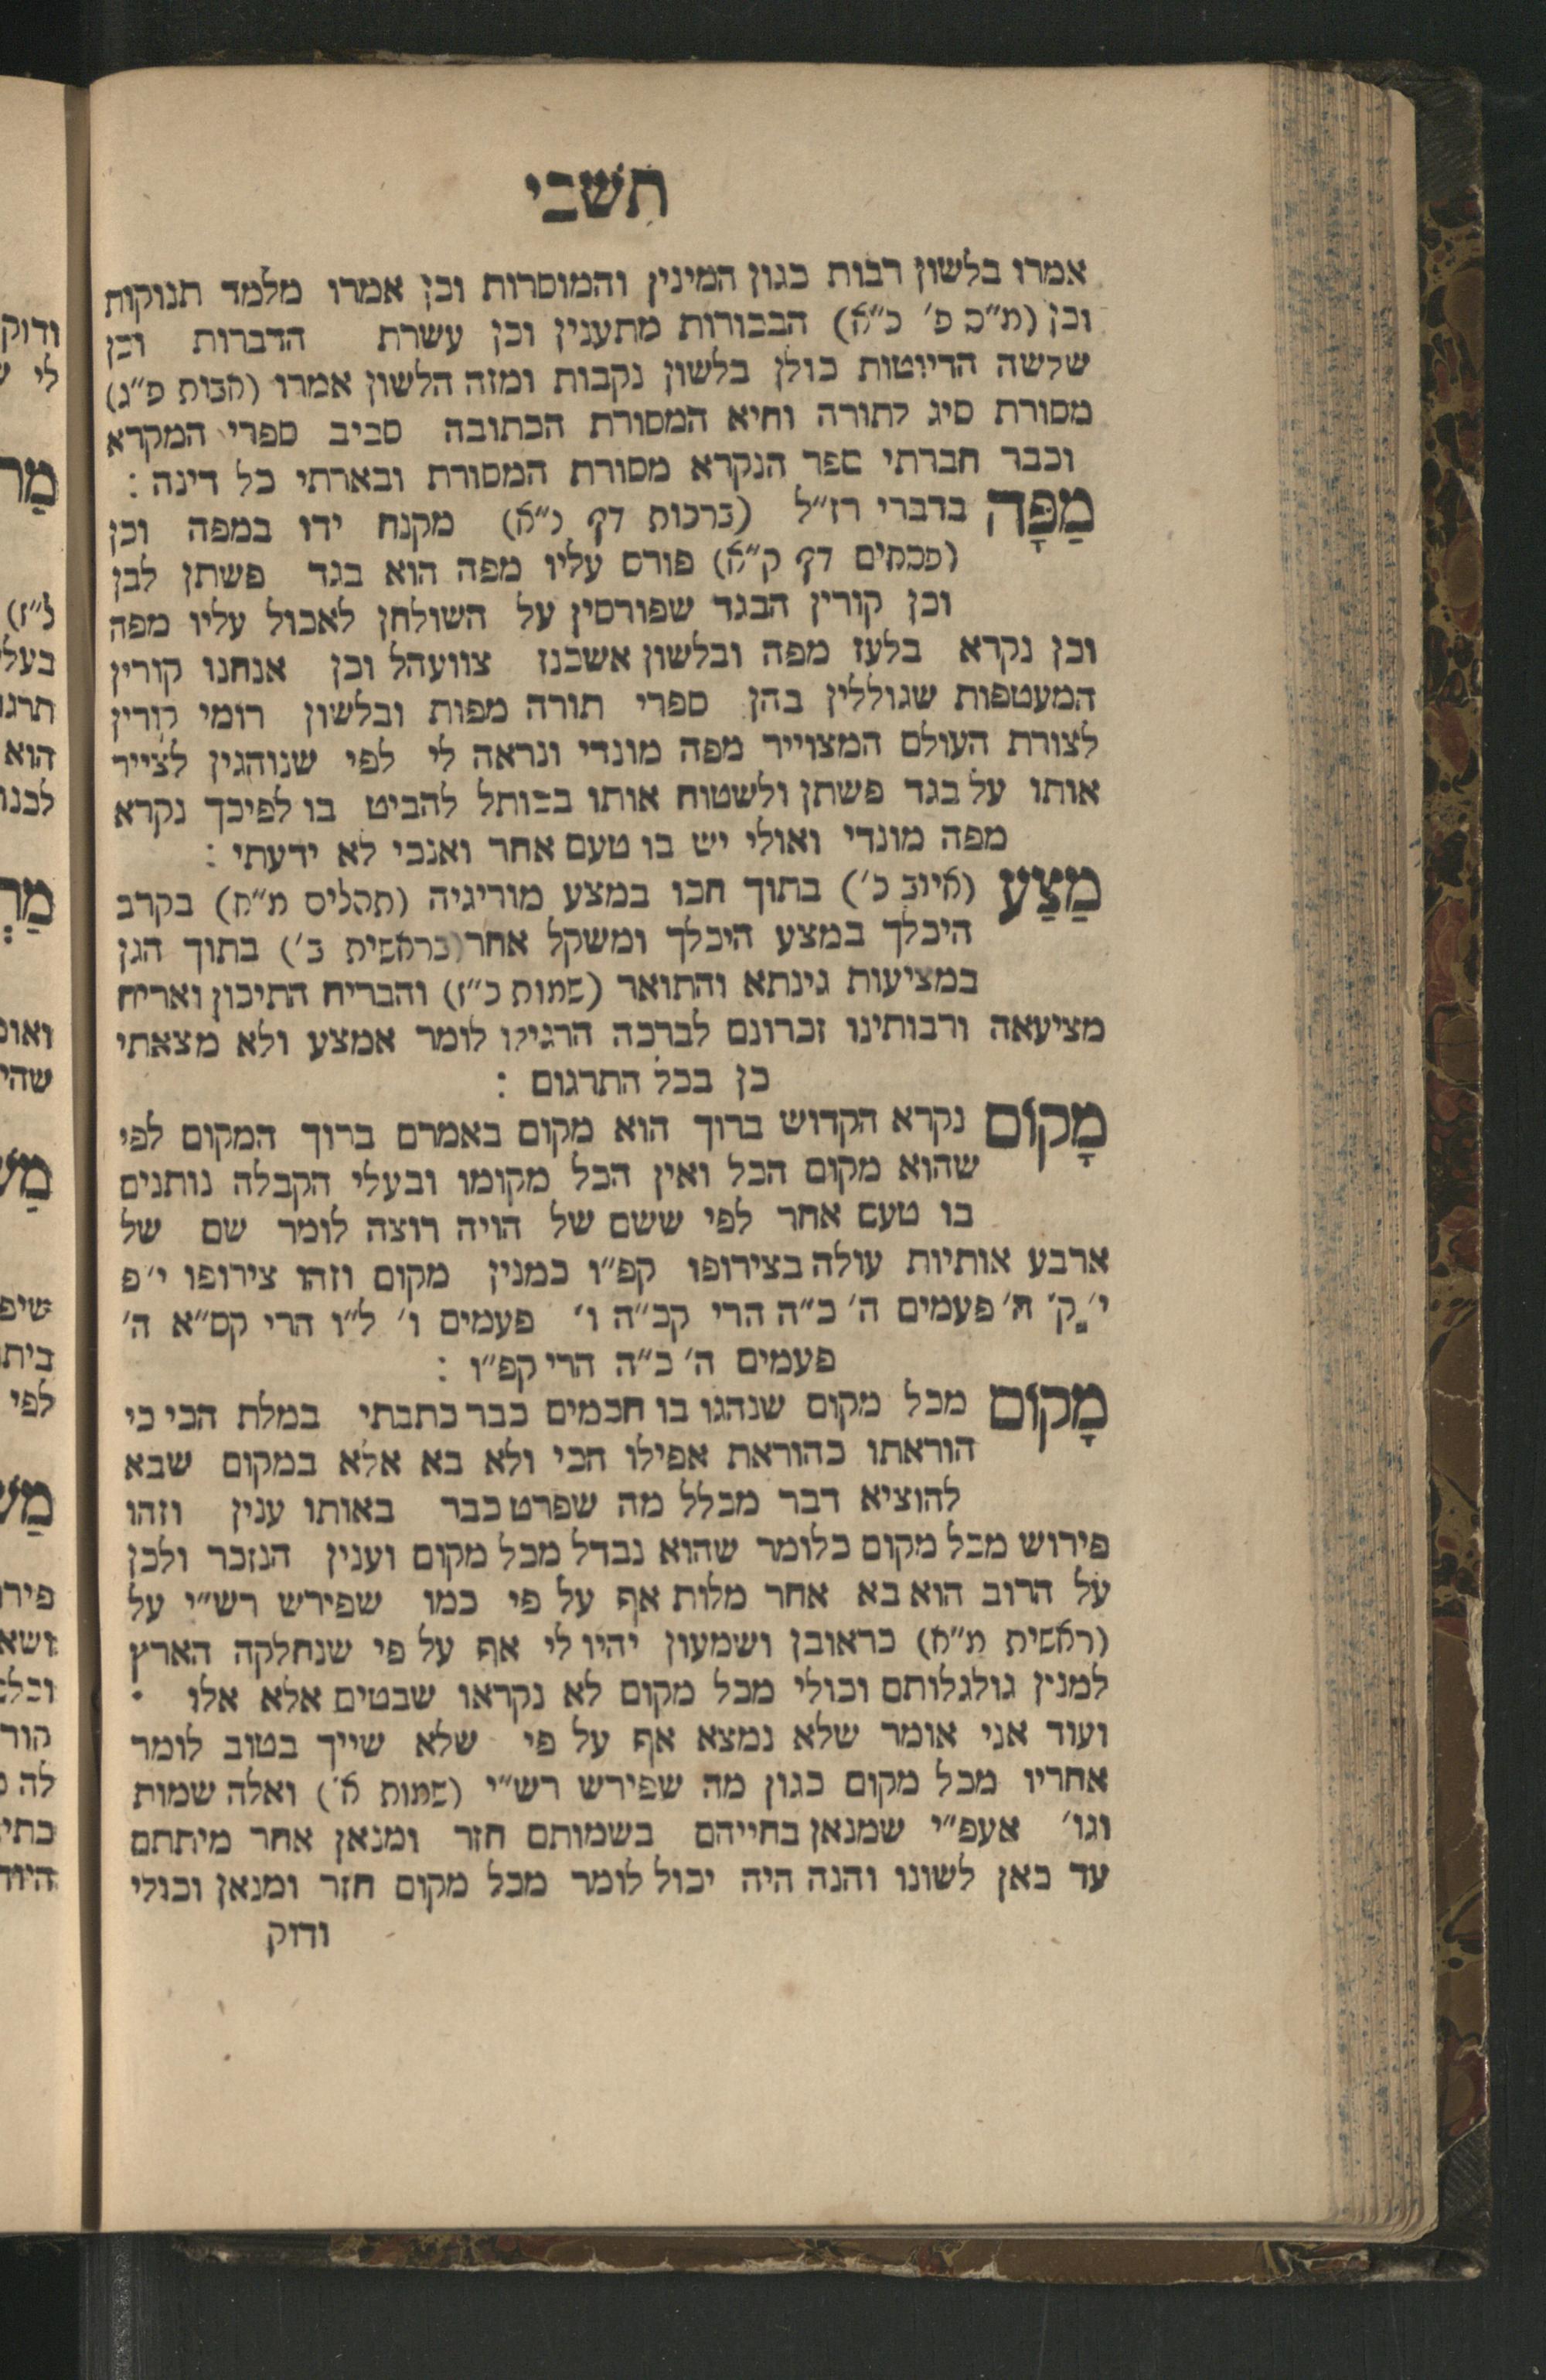 תשבי
אמרו בלשון רבות כגון המינין והמוסרות וכן אמרו מלמד תנוקות
וכן (מ״ס פ׳ כ״א) הבכורות מתענין וכן עשרת הדברות וכן
שלשה הדיוטות כולן בלשון נקבות ומזה הלשון אמרו (אבות פ״ג)
מסורת סיג לתורה והיא המסורת הכתובה סביב ספרי המקרא
וכבר חברתי ספר הנקרא מסורת המסורת ובארתי כל דינה :
מַפָּה בדברי רז״ל (ברכות דף נ״א) מקנח ידו במפה וכן
(פסחים דף ק״א) פורס עליו מפה הוא בגד פשתן לבן
וכן קורין הבגד שפורסין על השולחן לאכול עליו מפה
וכן נקרא בלעז מפה ובלשון אשכנז צוועהל וכן אנחנו קורין
המעטפות שגוללין בהן ספרי תורה מפות ובלשון רומי קורין
לצורת העולם המצוייר מפה מונדי ונראה לי לפי שנוהגין לצייר
אותו על בגד פשתן ולשטוח אותו בכותל להביט בו לפיכך נקרא
מפה מונדי ואולי יש בו טעם אחר ואנכי לא ידעתי :
מַצַע (איוב כ׳) בתוך חכו במצע מוריגיה (תהלים מ״ח) בקרב
היכלך במצע היכלך ומשקל אחר (בראשית ב׳) בתוך הגן
במציעות גינתא והתואר (שמות כ״ו) והבריח התיכון ואריח
מציעאה ורבותינו זכרונם לברכה הרגילו לומר אמצע ולא מצאתי
כן בכל התרגום :
מָקוֹם נקרא הקדוש ברוך הוא מקום באמרם ברוך המקום לפי
שהוא מקום הכל ואין הכל מקומו ובעלי הקבלה נותנים
בו טעם אחר לפי ששם של הויה רוצה לומר שם של
ארבע אותיות עולה בצירופו קפ״ו כמנין מקום וזהו צירופו י׳ פ
י׳ ק׳ ה׳ פעמים ה׳ כ״ה הרי קכ״ה ו׳ פעמים ו׳ ל״ו הרי קס״א ה׳
פעמים ה׳ כ״ה הרי קפ״ו :
מָקוֹם מכל מקום שנהגו בו חכמים כבר כתבתי במלת הכי כי
הוראתו כהוראת אפילו הכי ולא בא אלא במקום שבא
להוציא דבר מכלל מה שפרט כבר באותו ענין וזהו
פירוש מכל מקום כלומר שהוא נבדל מכל מקום וענין הנזכר ולכן
על הרוב הוא בא אחר מלות אף על פי כמו שפירש רש״י על
(ראשית מ״ח) כראובן ושמעון יהיו לי אף על פי שנחלקה הארץ
למנין גולגלותם וכולי מכל מקום לא נקראו שבטים אלא אלו ׃
ועוד אני אומר שלא נמצא אף על פי שלא שייך בטוב לומר
אחריו מכל מקום כגון מה שפירש רש״י (שמות א׳) ואלה שמות
וגו׳ אעפ״י שמנאן בחייהם בשמותם חזר ומנאן אחר מיתתם
עד כאן לשונו והנה היה יכול לומר מכל מקום חזר ומנאן וכולי
ודוק